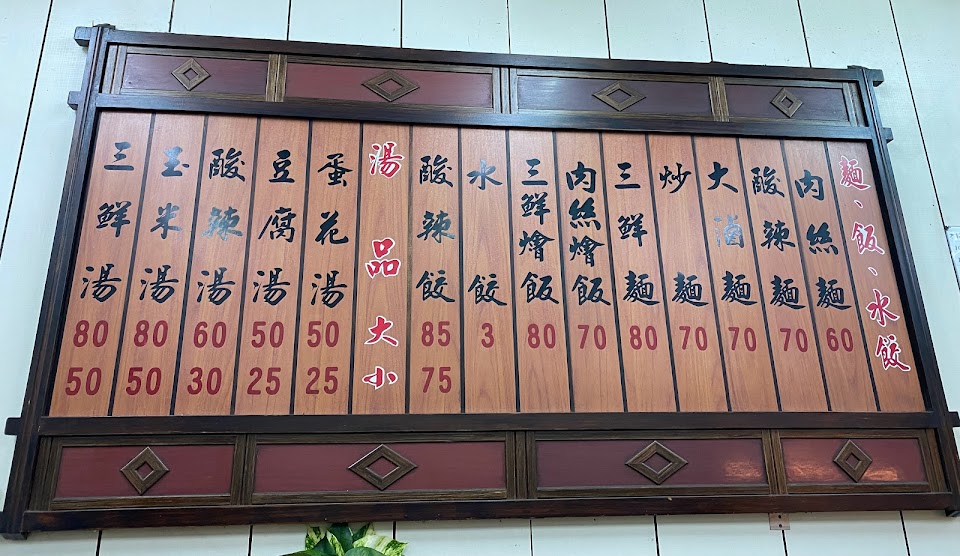 麵、飯、水餃
肉絲麵 60
酸辣麵 70
大滷麵 70
炒麵 70
三鮮麵 80
肉絲燴飯 70
三鮮燴飯 80
水餃 3
酸辣餃 85 75
湯品大小
蛋花湯 50 25
豆腐湯 50 25
酸辣湯 60 30
玉米湯 80 50
三鮮湯 80 50